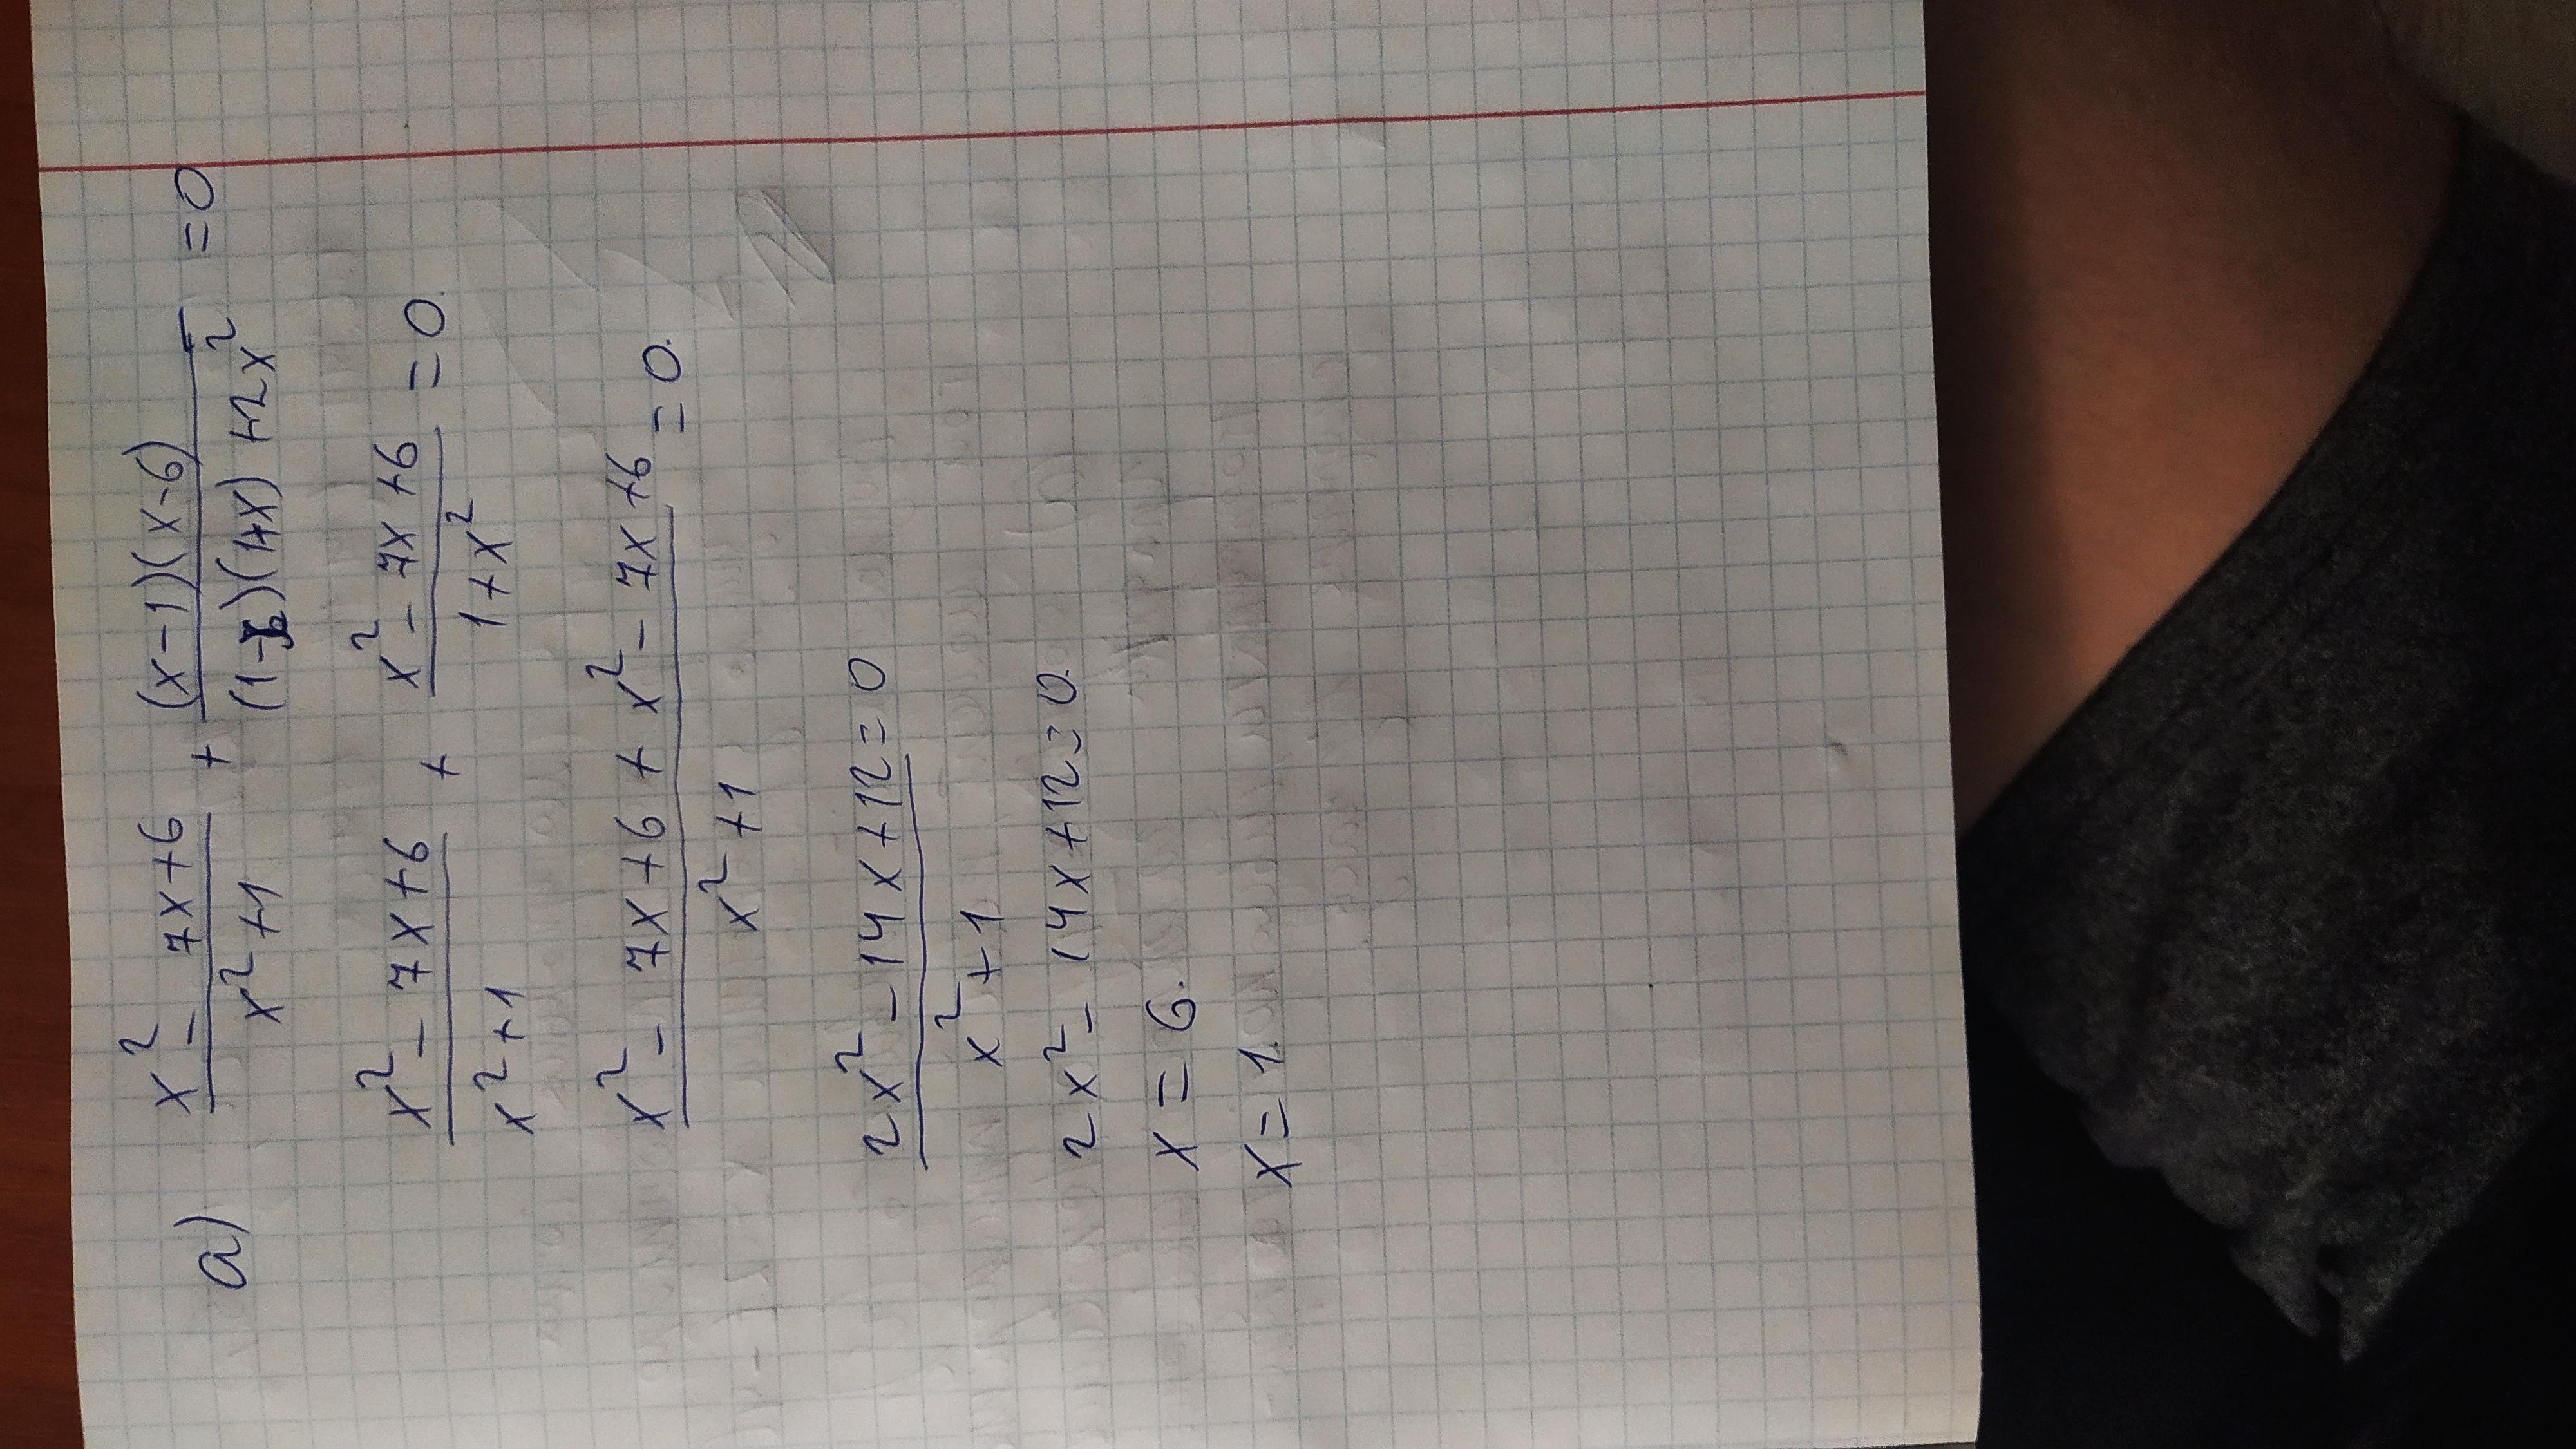 a) (x² - 7x + 6)/(x² + 1) + ((x - 1)(x - 6))/((1 - x)(1 + x) + 2x²) = 0
(x² - 7x + 6)/(x² + 1) + (x² - 7x + 6)/(1 + x²) = 0.
(x² - 7x + 6 + x² - 7x + 6)/(x² + 1) = 0.
(2x² - 14x + 12)/(x² + 1) = 0
2x² - 14x + 12 = 0.
x = 6.
x = 1.